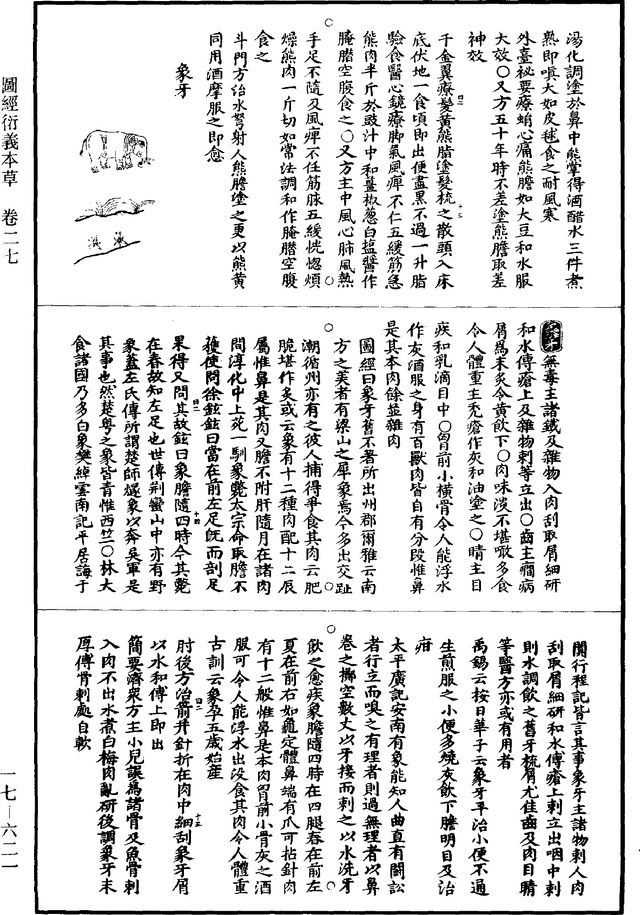 圖經衍義本草　卷二七
湯化調塗於鼻中能掌得酒醋水三件煮
熟即噀大如皮毬食之耐風寒
外臺祕要療蛕心痛熊膽如大豆和水服
大效〇又方五十年時不差塗熊膽取差
神效
千金翼療髮黃熊脂塗髮梳之散頭入床
底伏地一食頃即出便盡黑不過一升脂
驗食醫心鏡療脚氣風痺不仁五緩筋急
熊肉半斤於豉汁中和薑椒葱白塩醬作
腌腊空腹食之〇又方主中風心肺風熱
手足不隨及風痺不任筋脉五緩恍惚煩
燥熊肉一斤切如常法調和作腌腊空腹
食之
斗門方治水弩射人熊膽塗之更以熊黃
同用酒摩服之即愈
象牙
象牙無毒主諸鐵及雜物入肉刮取屑細研
和水傅瘡上及雜物刺等立出〇齒主癇病
屑爲末炙令黄飲下〇肉味淡不堪噉多食
令人體重主禿瘡作灰和油塗之〇睛主目
疾和乳滴目中〇胷前小橫骨令人能浮水
作灰酒服之身有百獸肉皆自有分段惟鼻
是其本肉餘並雜肉
圖經曰象牙舊不著所出州郡爾雅云南
方之美者有梁山之犀象焉今多出交趾
潮循州亦有之彼人捕得爭食其肉云肥
脆堪作炙或云象有十二種肉配十二辰
屬惟鼻是其肉又膽不附肝隨月在諸肉
間淳化中上苑一馴象斃太宗命取膽不
獲使問徐鉉鉉曰當在前左足旣而剖足
果得又問其故鉉曰象膽隨四時今其斃
在春故知左足也世傳荆蠻山中亦有野
象蓋左氏傳所謂楚師燧象以奔吳軍是
其事也然楚粤之象皆青惟西竺〇林大
食諸國乃多白象樊綽雲南記平居誨于
闐行程記皆言其事象牙主諸物刺人肉
刮取屑細研和水傅瘡上刺立出咽中刺
則水調飲之舊牙梳屑尤佳齒及肉目睛
等醫方亦或有用者
禹錫云按日華子云象牙平治小便不通
生煎服之小便多燒灰飲下膽明目及治
疳
太平廣記安南有象能知人曲直有鬭訟
者行立而嗅之有理者則過無理者以鼻
卷之擲空數丈以牙接而刺之以水洗牙
飲之愈疾象膽隨四時在四腿春在前左
夏在前右如龜定體鼻端有爪可拈針肉
有十二般惟鼻是本肉胷前小骨灰之酒
服可令人能浮水出没食其肉令人體重
古訓云象孕五歲始産
肘後方治箭并針折在肉中細刮象牙屑
以水和傅上即出
簡要濟衆方主小兒誤爲諸骨及魚骨刺
入肉不出水煮白梅肉亂研後調象牙末
厚傅骨刺處自軟
一七—六二一